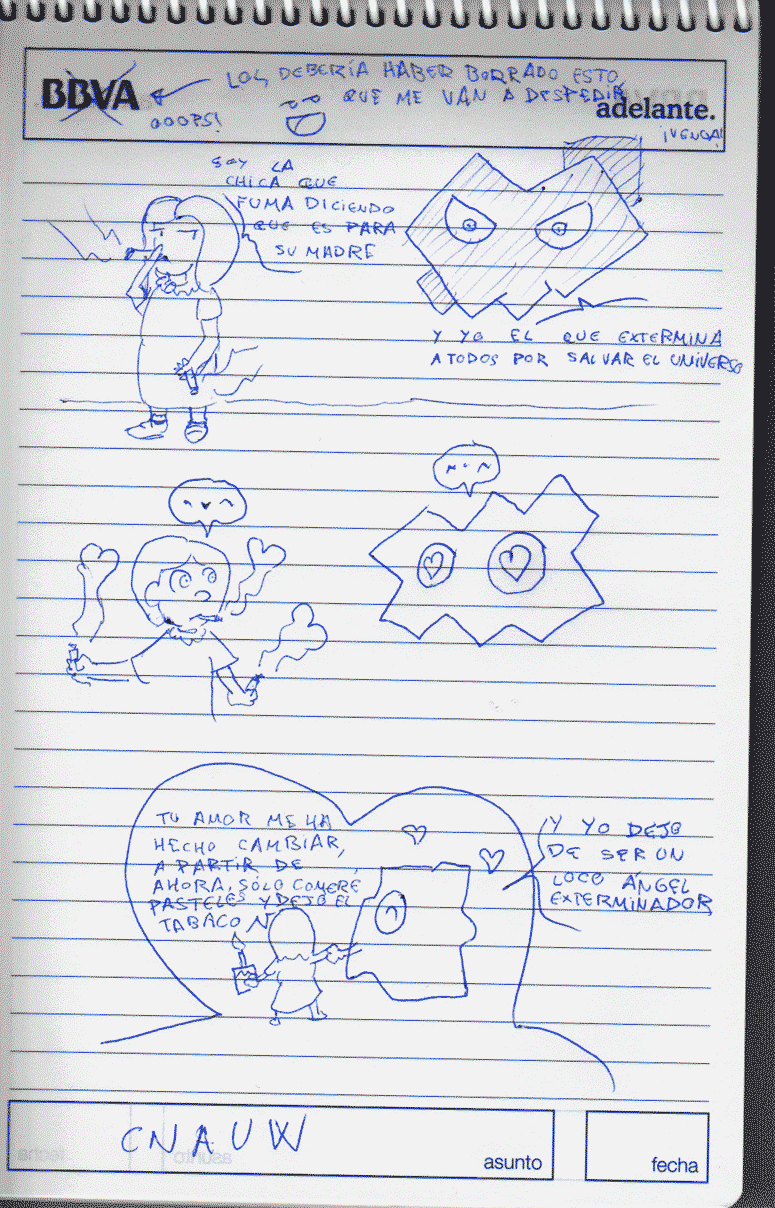 BBVA
LOL, DEBERÍA HABER BORRADO ESTO,
QUE ME VAN A DESPEDIR
OOOPS!
adelante.
¡VENGA!
SOY LA
CHICA QUE
FUMA DICIENDO
QUE ES PARA
SU MADRE
Y YO EL QUE EXTERMINA
A TODOS POR SALVAR EL UNIVERSO
TU AMOR ME HA
HECHO CAMBIAR,
A PARTIR DE
AHORA, SÓLO COMERÉ
PASTELES Y DEJO EL
TABACO
Y YO DEJO
DE SER UN
LOCO ÁNGEL
EXTERMINADOR
CNAUW
asunto
fecha